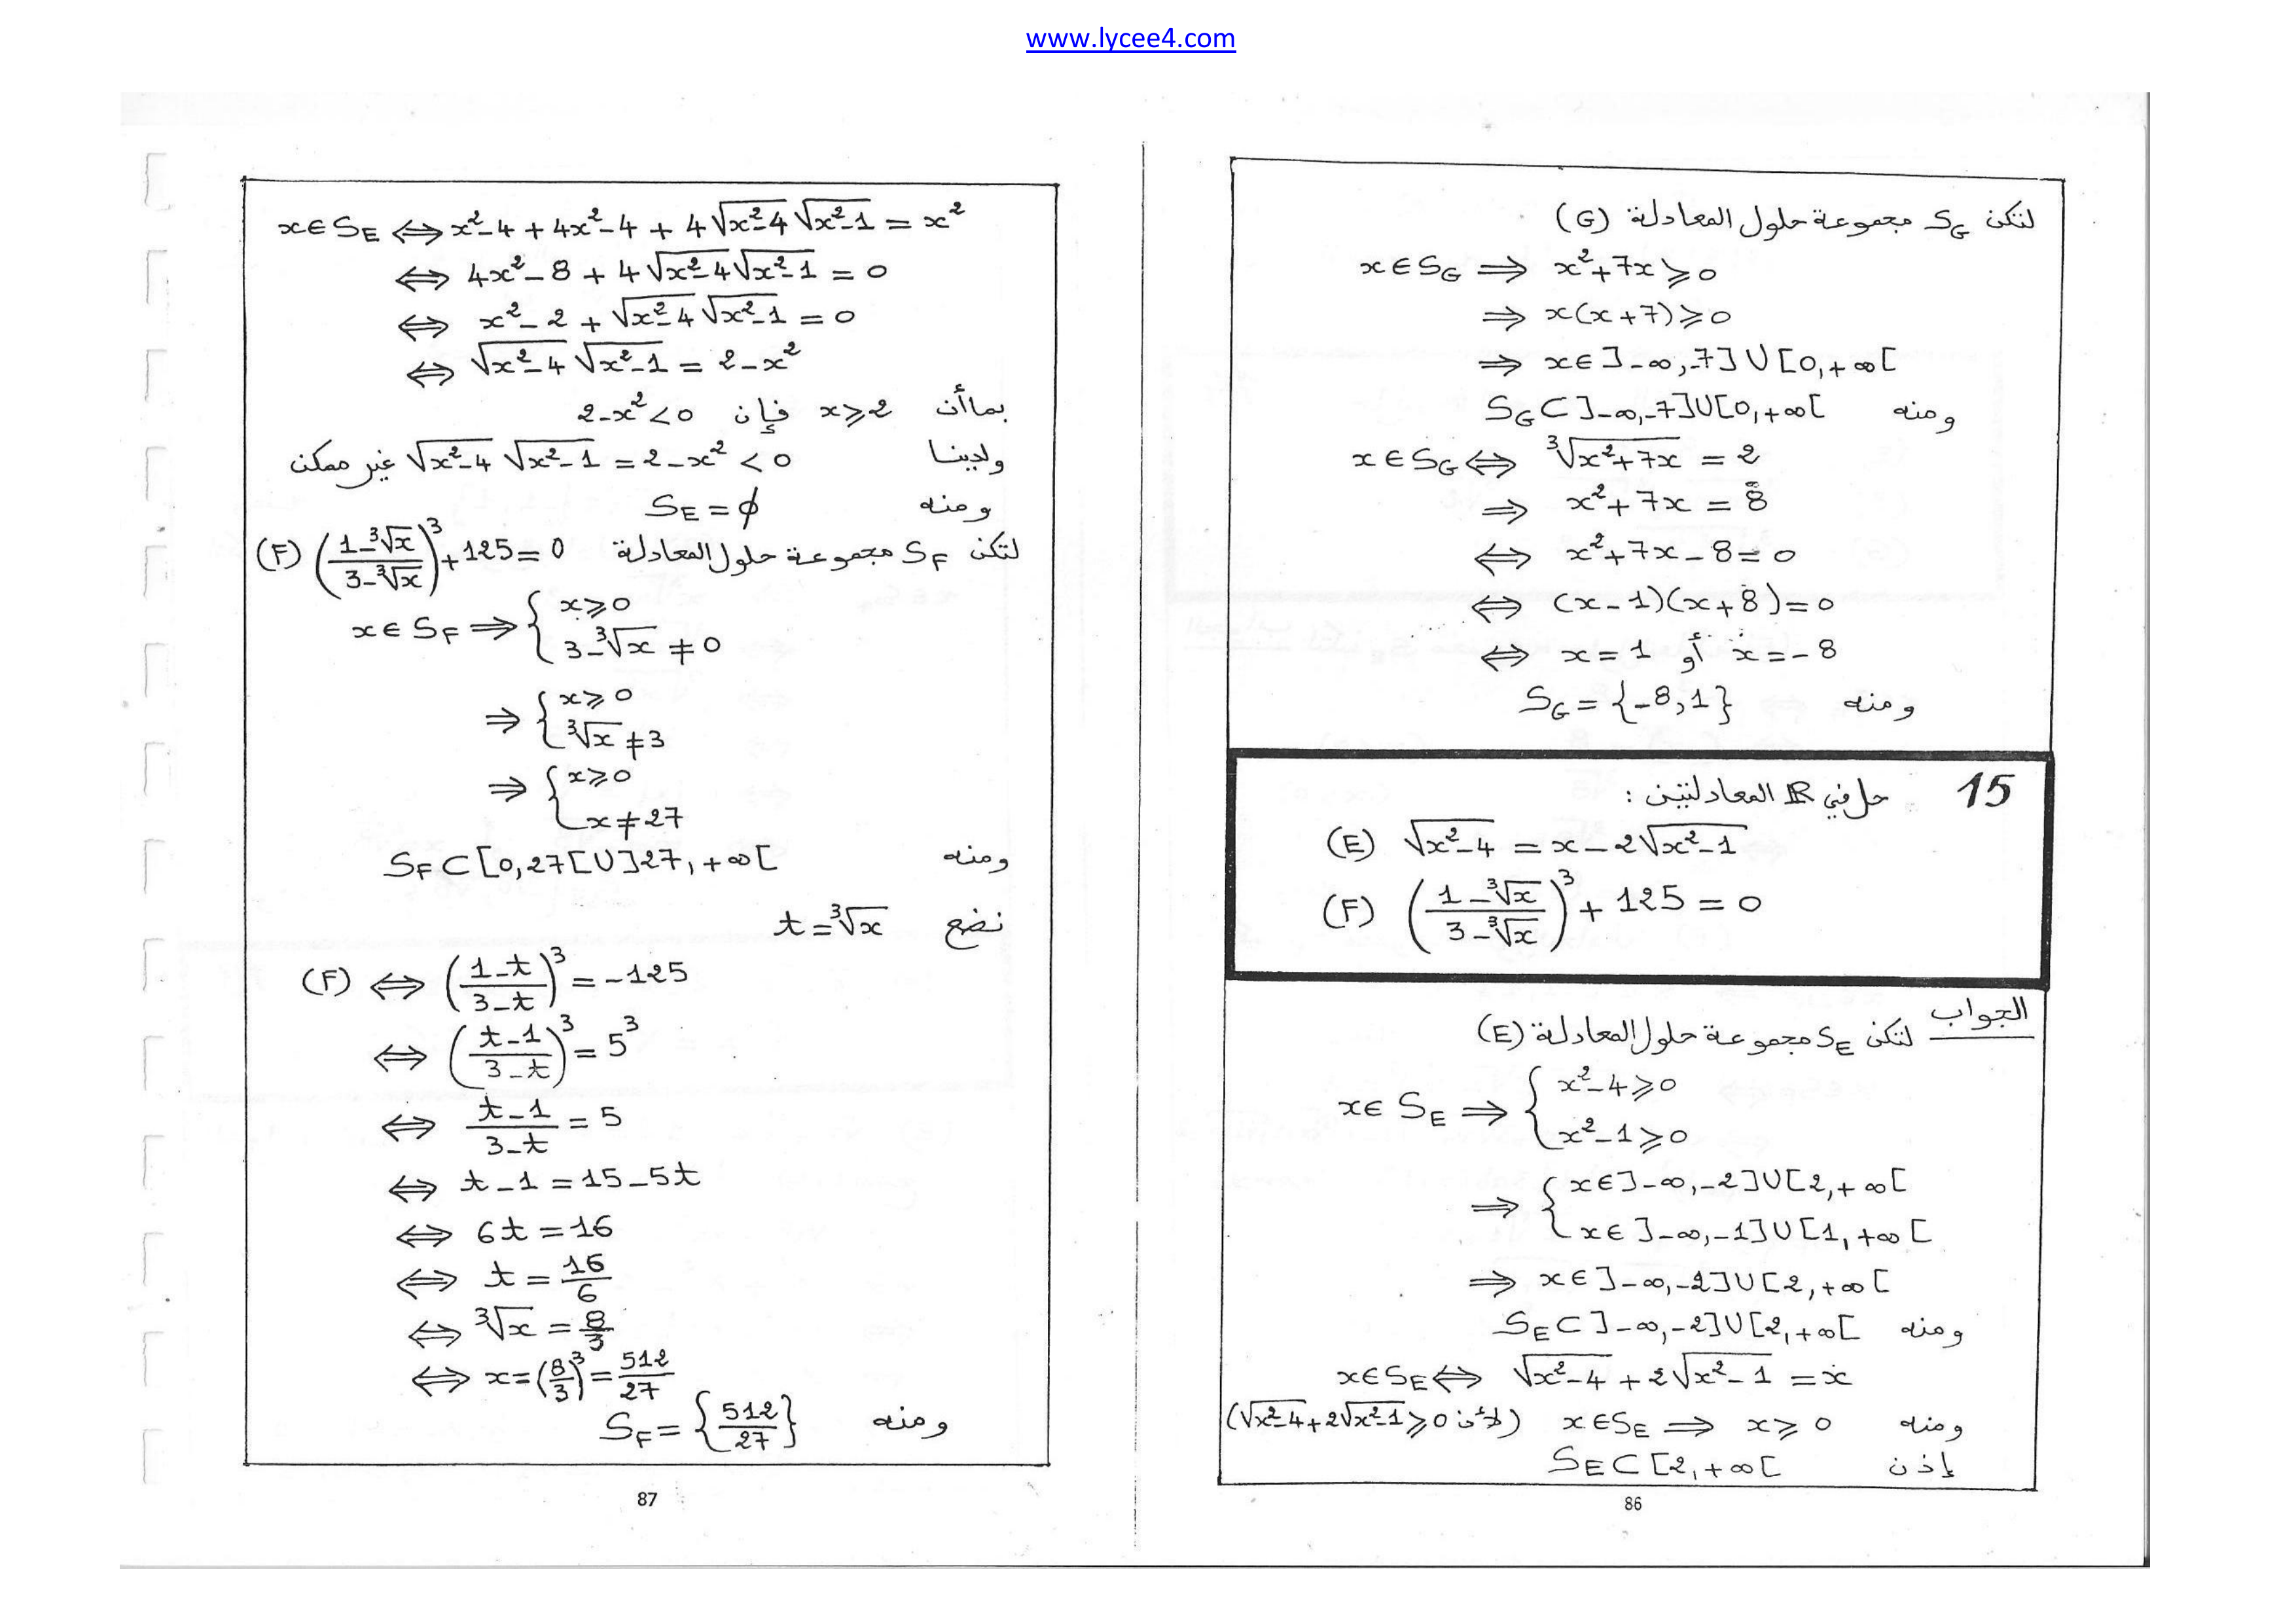 www.lycee4.com
لتكن S_G مجموعة حلول المعادلة (G)
x∈S_G ⟹ x²+7x⩾0
⟹ x(x+7)⩾0
⟹ x∈]-∞,-7]∪[0,+∞[
ومنه S_G⊂]-∞,-7]∪[0,+∞[
x∈S_G ⟺ ∛(x²+7x) = 2
⟹ x²+7x = 8
⟺ x²+7x-8=0
⟺ (x-1)(x+8)=0
⟺ x=1 أو x=-8
ومنه S_G={-8,1}
15 حل في ℝ المعادلتين :
(E) √(x²-4) = x-2√(x²-1)
(F) ((1-∛x)/(3-∛x))³ + 125 = 0
الجواب لتكن S_E مجموعة حلول المعادلة (E)
x∈S_E ⟹ { x²-4⩾0
x²-1⩾0
⟹ { x∈]-∞,-2]∪[2,+∞[
x∈]-∞,-1]∪[1,+∞[
⟹ x∈]-∞,-2]∪[2,+∞[
ومنه S_E⊂]-∞,-2]∪[2,+∞[
x∈S_E ⟺ √(x²-4)+2√(x²-1) = x
ومنه x∈S_E ⟹ x⩾0 (لأن √(x²-4)+2√(x²-1)⩾0)
إذن S_E⊂[2,+∞[
86
x∈S_E ⟺ x²-4+4x²-4+4√(x²-4)√(x²-1) = x²
⟺ 4x²-8+4√(x²-4)√(x²-1) = 0
⟺ x²-2+√(x²-4)√(x²-1) = 0
⟺ √(x²-4)√(x²-1) = 2-x²
بما أن x⩾2 فإن 2-x²<0
ولدينا √(x²-4)√(x²-1) = 2-x² < 0 غير ممكن
ومنه S_E=ϕ
لتكن S_F مجموعة حلول المعادلة (F) ((1-∛x)/(3-∛x))³+125=0
x∈S_F ⟹ { x⩾0
3-∛x ≠ 0
⟹ { x⩾0
∛x≠3
⟹ { x⩾0
x≠27
ومنه S_F⊂[0,27[∪]27,+∞[
نضع t=∛x
(F) ⟺ ((1-t)/(3-t))³ = -125
⟺ ((t-1)/(3-t))³ = 5³
⟺ (t-1)/(3-t) = 5
⟺ t-1=15-5t
⟺ 6t=16
⟺ t=16/6
⟺ ∛x=8/3
⟺ x=(8/3)³=512/27
ومنه S_F={512/27}
87